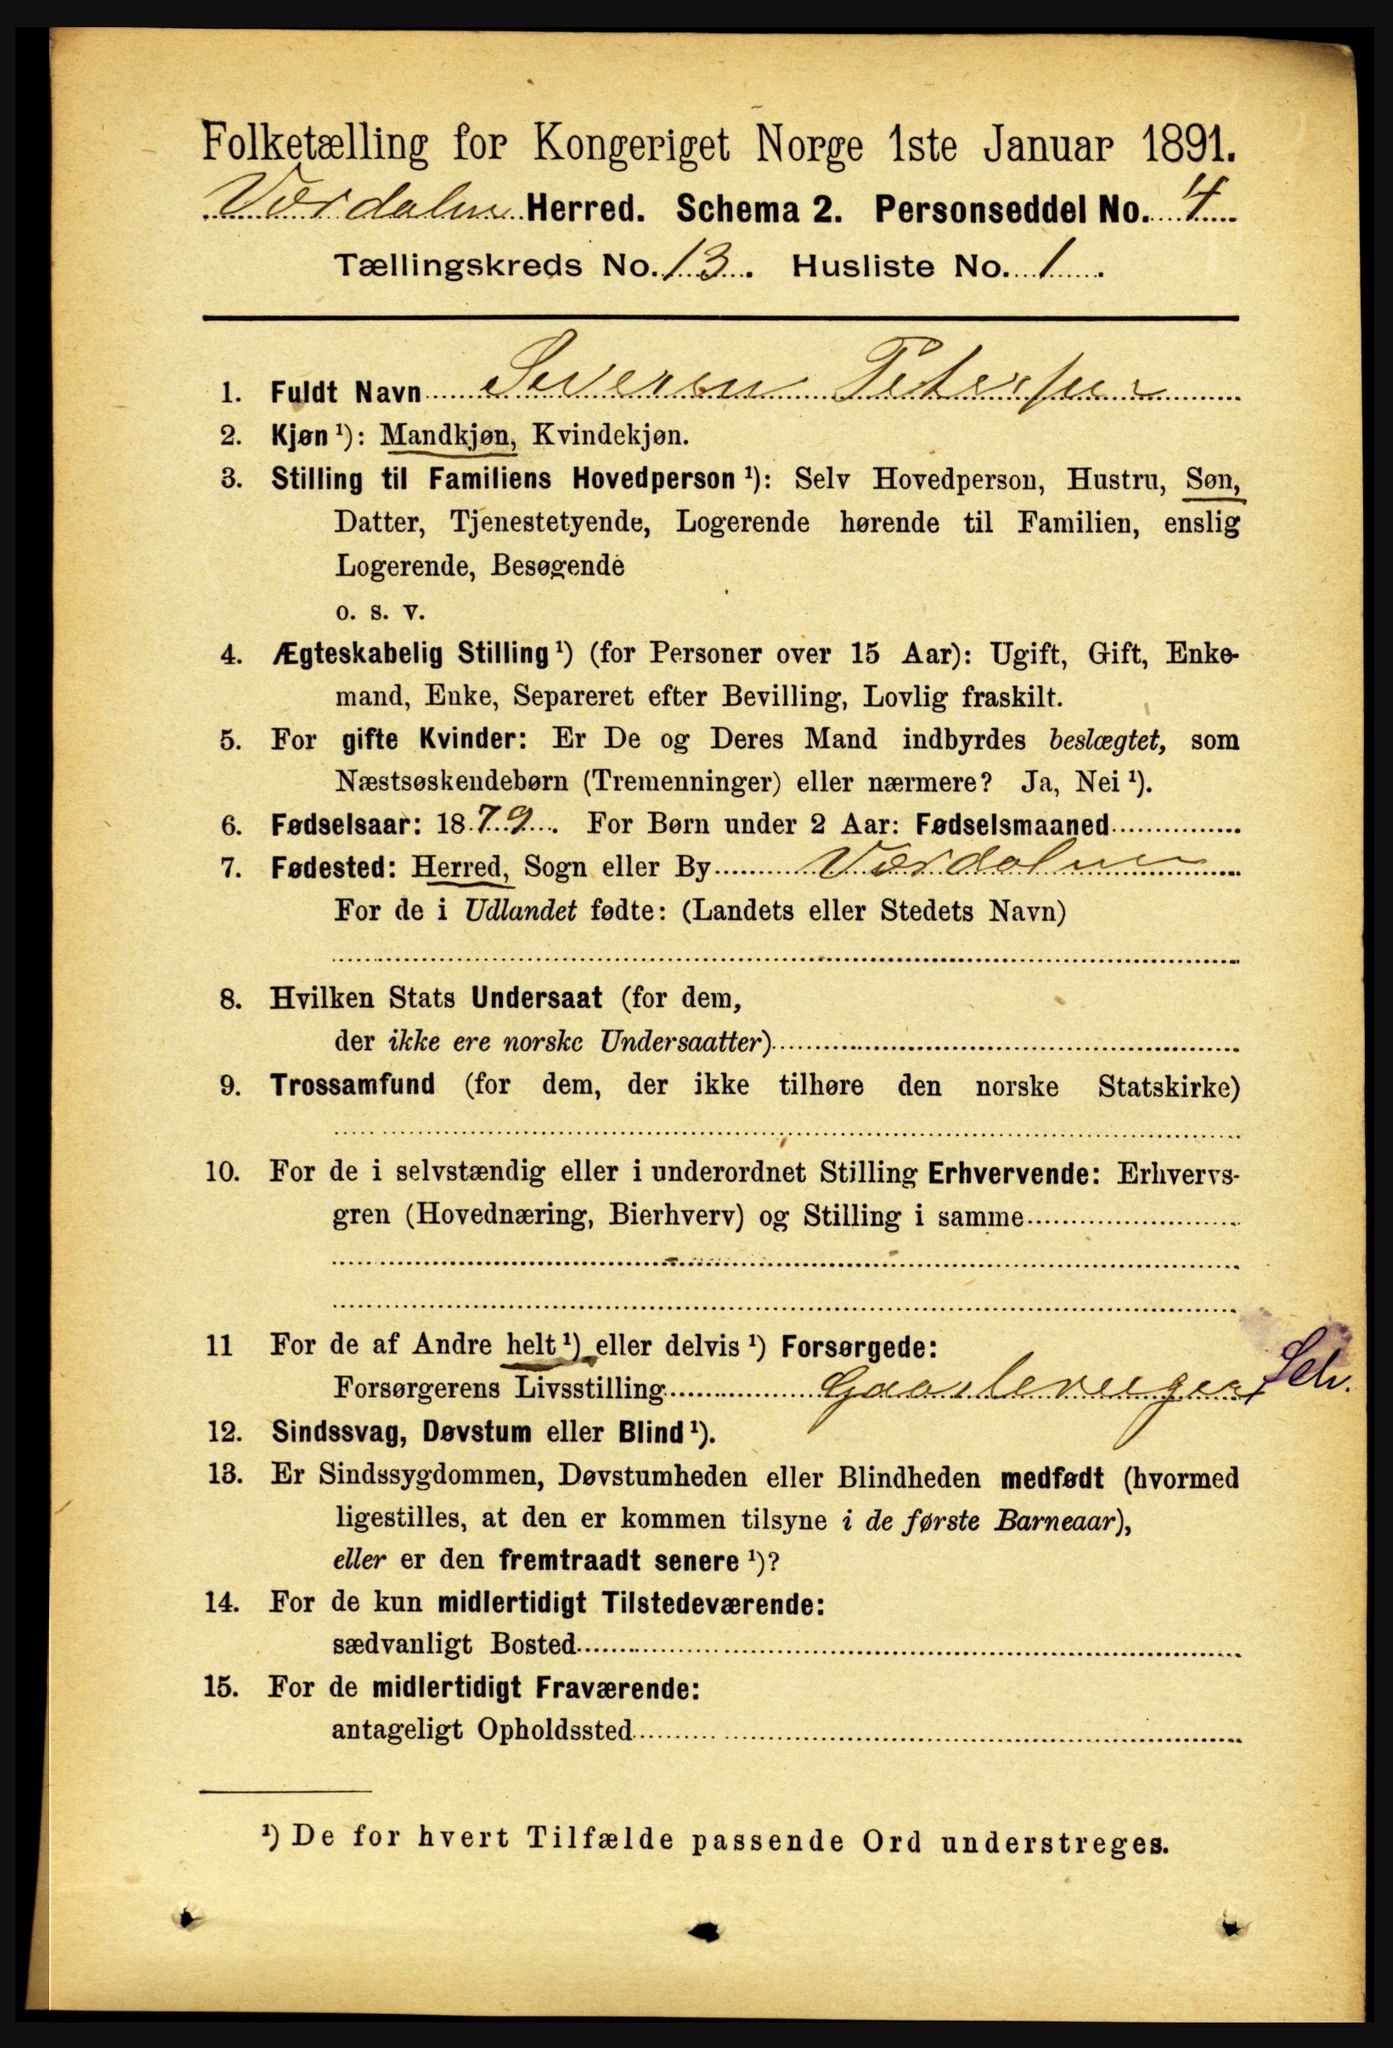 Folketælling for Kongeriget Norge 1ste Januar 1891.
Værdalen Herred. Schema 2. Personseddel No. 4
Tællingskreds No. 13. Husliste No. 1.
1. Fuldt Navn Severin Petersen
2. Kjøn ¹): Mandkjøn, Kvindekjøn.
3. Stilling til Familiens Hovedperson ¹): Selv Hovedperson, Hustru, Søn,
Datter, Tjenestetyende, Logerende hørende til Familien, enslig
Logerende, Besøgende
o. s. v.
4. Ægteskabelig Stilling ¹) (for Personer over 15 Aar): Ugift, Gift, Enke-
mand, Enke, Separeret efter Bevilling, Lovlig fraskilt.
5. For gifte Kvinder: Er De og Deres Mand indbyrdes beslægtet, som
Næstsøskendebørn (Tremenninger) eller nærmere? Ja, Nei ¹).
6. Fødselsaar: 1879. For Børn under 2 Aar: Fødselsmaaned
7. Fødested: Herred, Sogn eller By Værdalen
For de i Udlandet fødte: (Landets eller Stedets Navn)
8. Hvilken Stats Undersaat (for dem,
der ikke ere norske Undersaatter)
9. Trossamfund (for dem, der ikke tilhøre den norske Statskirke)
10. For de i selvstændig eller i underordnet Stilling Erhvervende: Erhvervs-
gren (Hovednæring, Bierhverv) og Stilling i samme
11 For de af Andre helt ¹) eller delvis ¹) Forsørgede:
Forsørgerens Livsstilling Selv.
12. Sindssvag, Døvstum eller Blind ¹).
13. Er Sindssygdommen, Døvstumheden eller Blindheden medfødt (hvormed
ligestilles, at den er kommen tilsyne i de første Barneaar),
eller er den fremtraadt senere ¹)?
14. For de kun midlertidigt Tilstedeværende:
sædvanligt Bosted
15. For de midlertidigt Fraværende:
antageligt Opholdssted
¹) De for hvert Tilfælde passende Ord understreges.